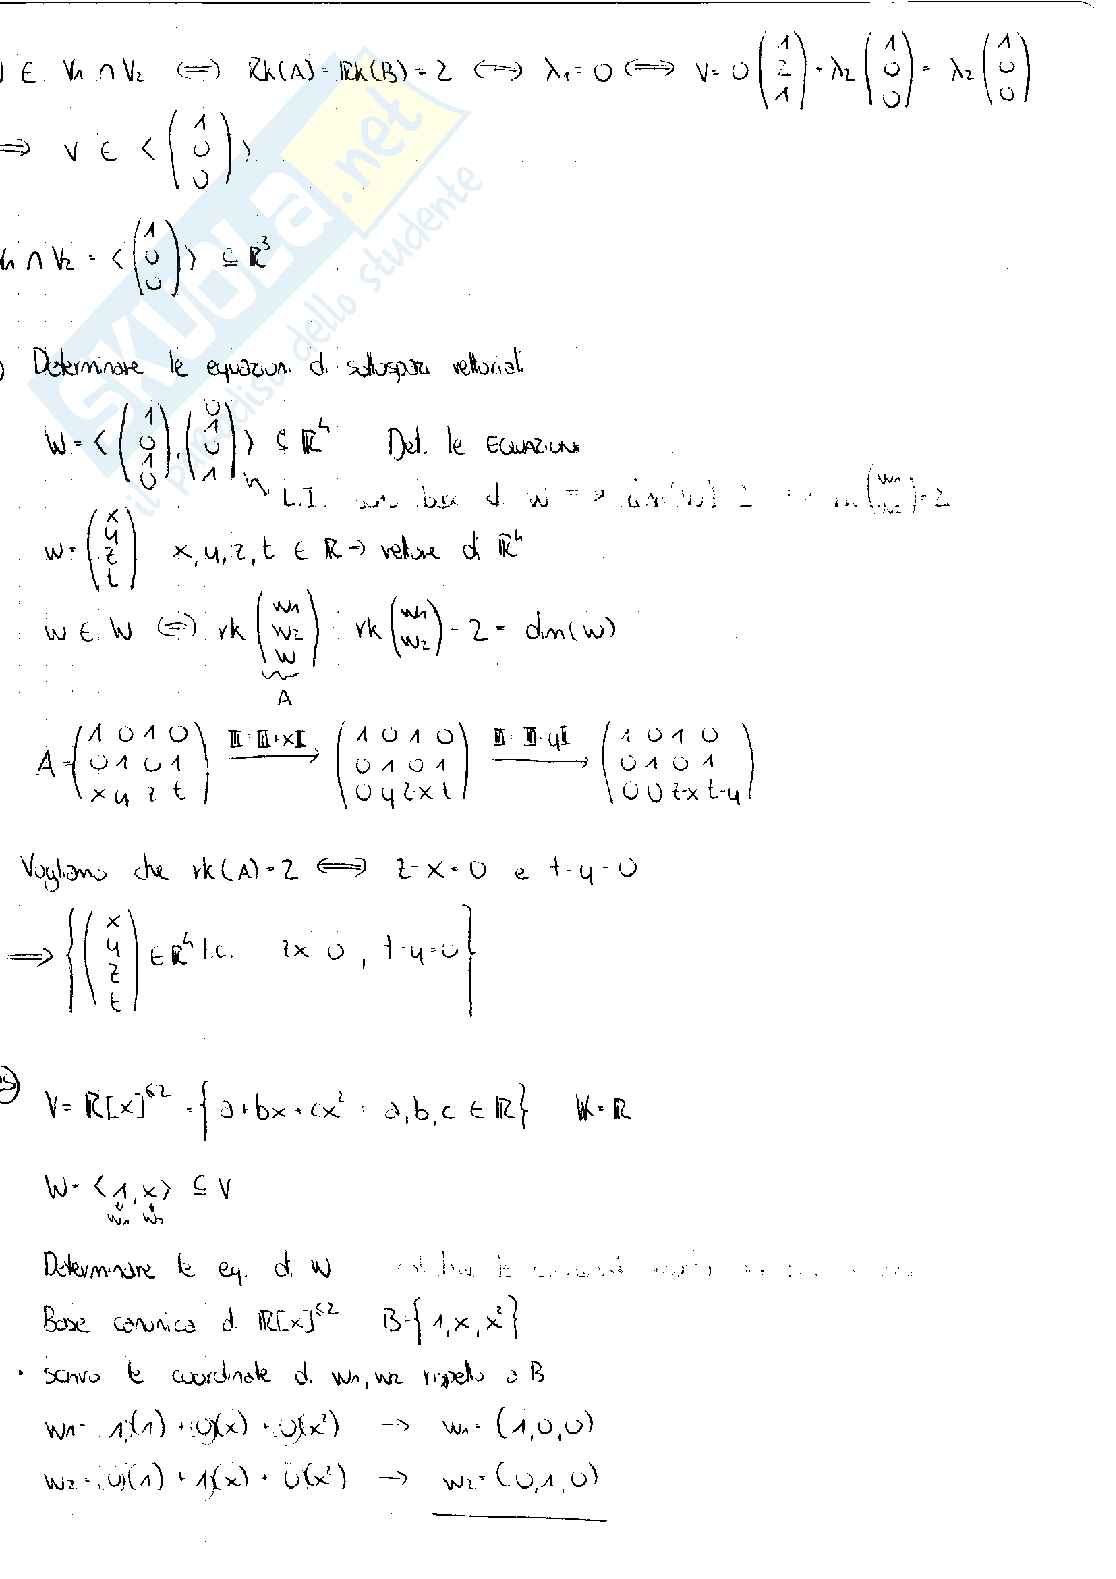 ∈ V₁ ∩ V₂ ⟺ Rk(A) = Rk(B) = 2 ⟺ λ₁ = 0 ⟺ v = 0 (1 2 1) + λ₂ (1 0 0) = λ₂ (1 0 0)
⟹ v ∈ < (1 0 0) >
V₁ ∩ V₂ = < (1 0 0) > ⊆ ℝ³
) Determinare le equazioni di sottospazi vettoriali
W = < (1 0 1 0), (0 1 0 1) > ⊆ ℝ⁴ Det. le EQUAZIONI
L.I. sono base di W ⟹ dim(W) 2 (w₁ w₂) = 2
w = (x y z t) x, y, z, t ∈ ℝ → vettore di ℝ⁴
w ∈ W ⟺ rk (w₁ w₂ w) = rk (w₁ w₂) = 2 = dim(W)
A
A = (1 0 1 0 / 0 1 0 1 / x y z t) III = III + xI → (1 0 1 0 / 0 1 0 1 / 0 y z-x t) III = III - yII → (1 0 1 0 / 0 1 0 1 / 0 0 z-x t-y)
Vogliamo che rk(A) = 2 ⟺ z - x = 0 e t - y = 0
⟹ { (x y z t) ∈ ℝ⁴ t.c. zx 0 , t - y = 0 }
V = ℝ[x]^≤2 = { a + bx + cx² : a, b, c ∈ ℝ } K = ℝ
W = < 1, x > ⊆ V
w₁ w₂
Determinare le eq. di W
Base canonica di ℝ[x]^≤2 B = { 1, x, x² }
• scrivo le coordinate di w₁, w₂ rispetto a B
w₁ = 1(1) + 0(x) + 0(x²) → w₁ = (1, 0, 0)
w₂ = 0(1) + 1(x) + 0(x²) → w₂ = (0, 1, 0)
SKUOLA.net
il paradiso dello studente